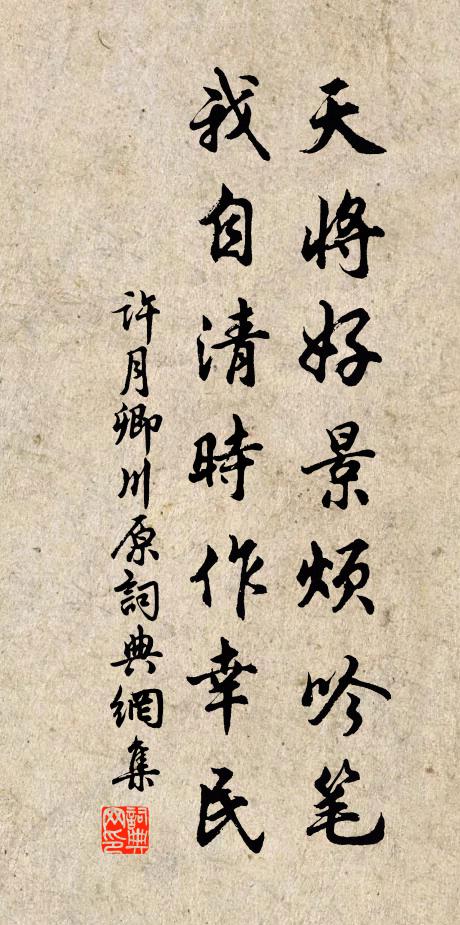 天将好景烦吟笔
我自清時作幸民
許月卿川原詞典網集
詞典网印